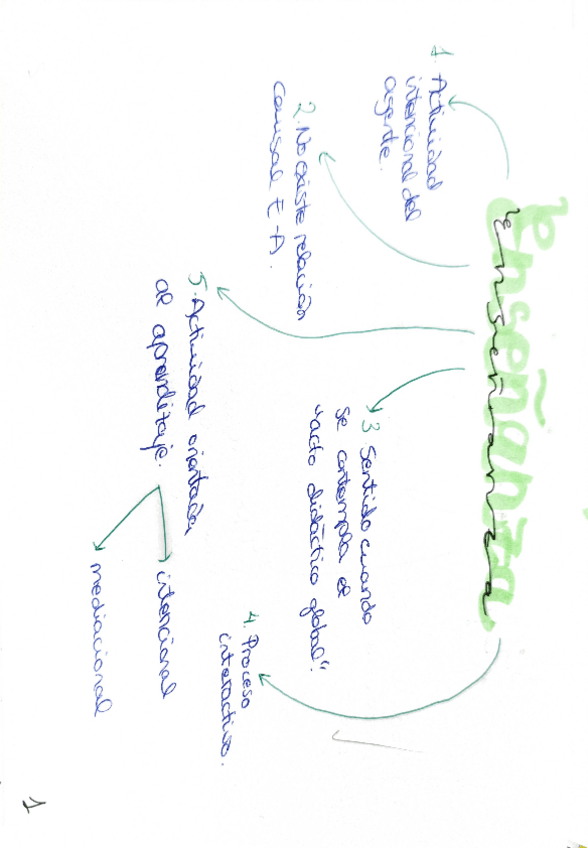 Enseñanza
enseñanza
1. Actividad
intencional del
agente.
2. No existe relación
causal E-A.
3 Sentido cuando
se contempla el
"acto didáctico global".
4. Proceso
interactivo.
5. Actividad orientada
al aprendizaje.
intencional
mediacional
1